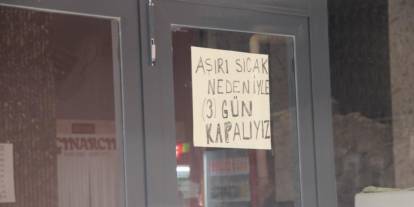 AŞIRI SICAK
NEDENİYLE
(3) GÜN
KAPALIYIZ
ÇINARCIK